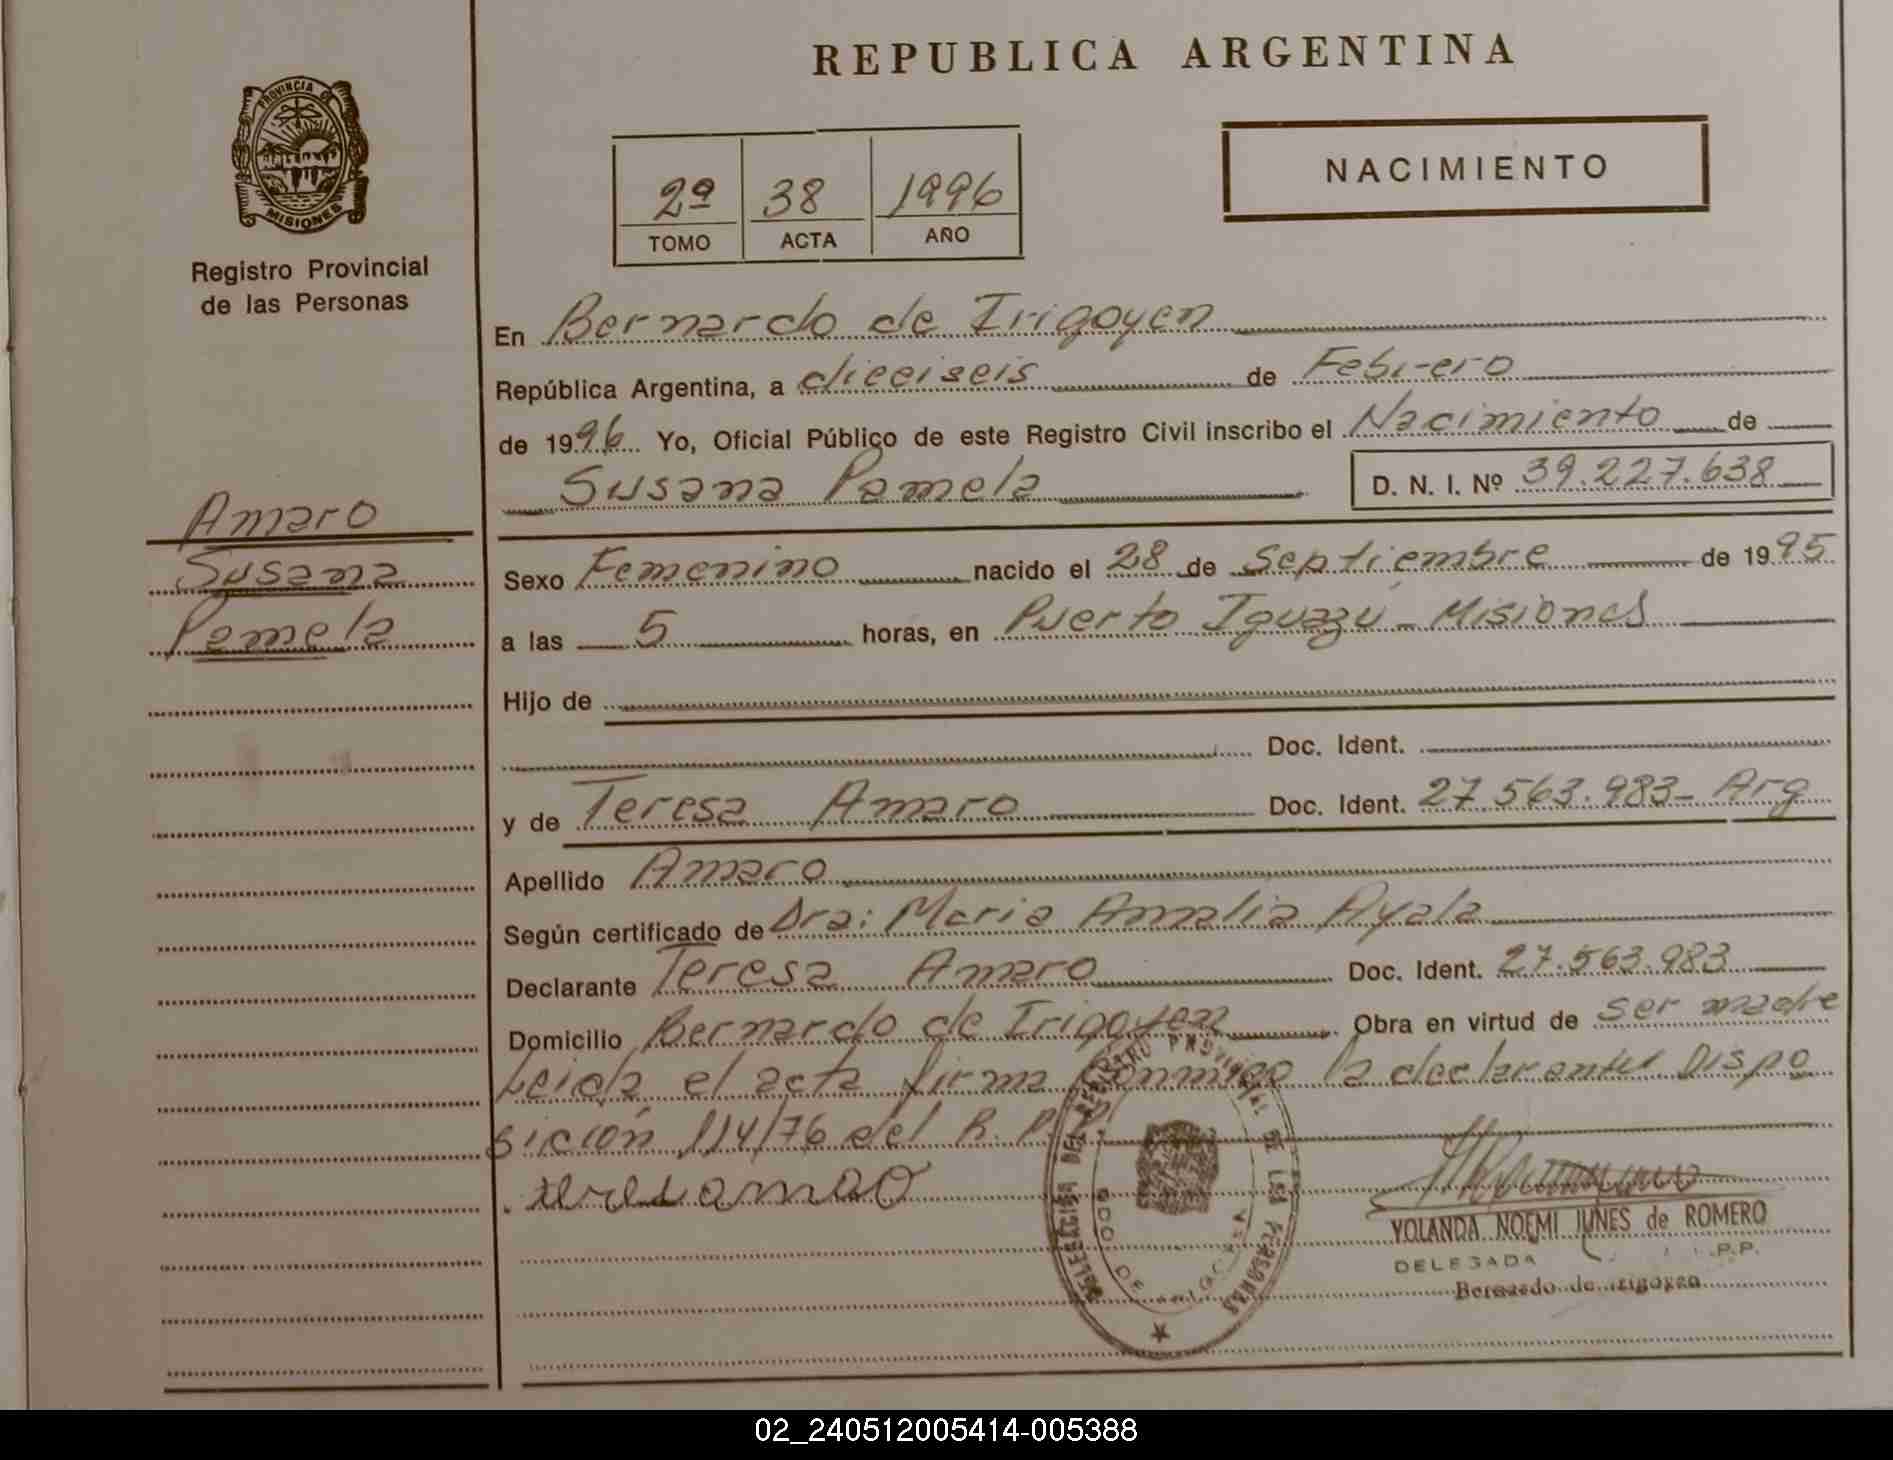 REPUBLICA ARGENTINA
PROVINCIA DE
MISIONES
Registro Provincial
de las Personas
2ª 38 1996
TOMO ACTA AÑO
NACIMIENTO
En Bernardo de Irigoyen
República Argentina, a dieciseis de Febrero
de 1996. Yo, Oficial Público de este Registro Civil inscribo el Nacimiento de
Susana Pamela D. N. I. Nº 39.227.638
Amaro
Susana
Pamela
Sexo Femenino nacido el 28 de Septiembre de 1995
a las 5 horas, en Puerto Iguazú - Misiones
Hijo de
Doc. Ident.
y de Teresa Amaro Doc. Ident. 27.563.983- Arg
Apellido Amaro
Según certificado de Dra: Maria Amalia Ayala
Declarante Teresa Amaro Doc. Ident. 27.563.983
Domicilio Bernardo de Irigoyen Obra en virtud de ser madre
Leida el acta firma conmigo la declarante Dispo
sición 114/76 del R. P.
DELEGACIÓN DEL REGISTRO PROVINCIAL DE LAS PERSONAS
BDO DE IRIGOYEN
YOLANDA NOEMI JUNES de ROMERO
DELEGADA P.P.
Bernardo de Irigoyen
02_240512005414-005388